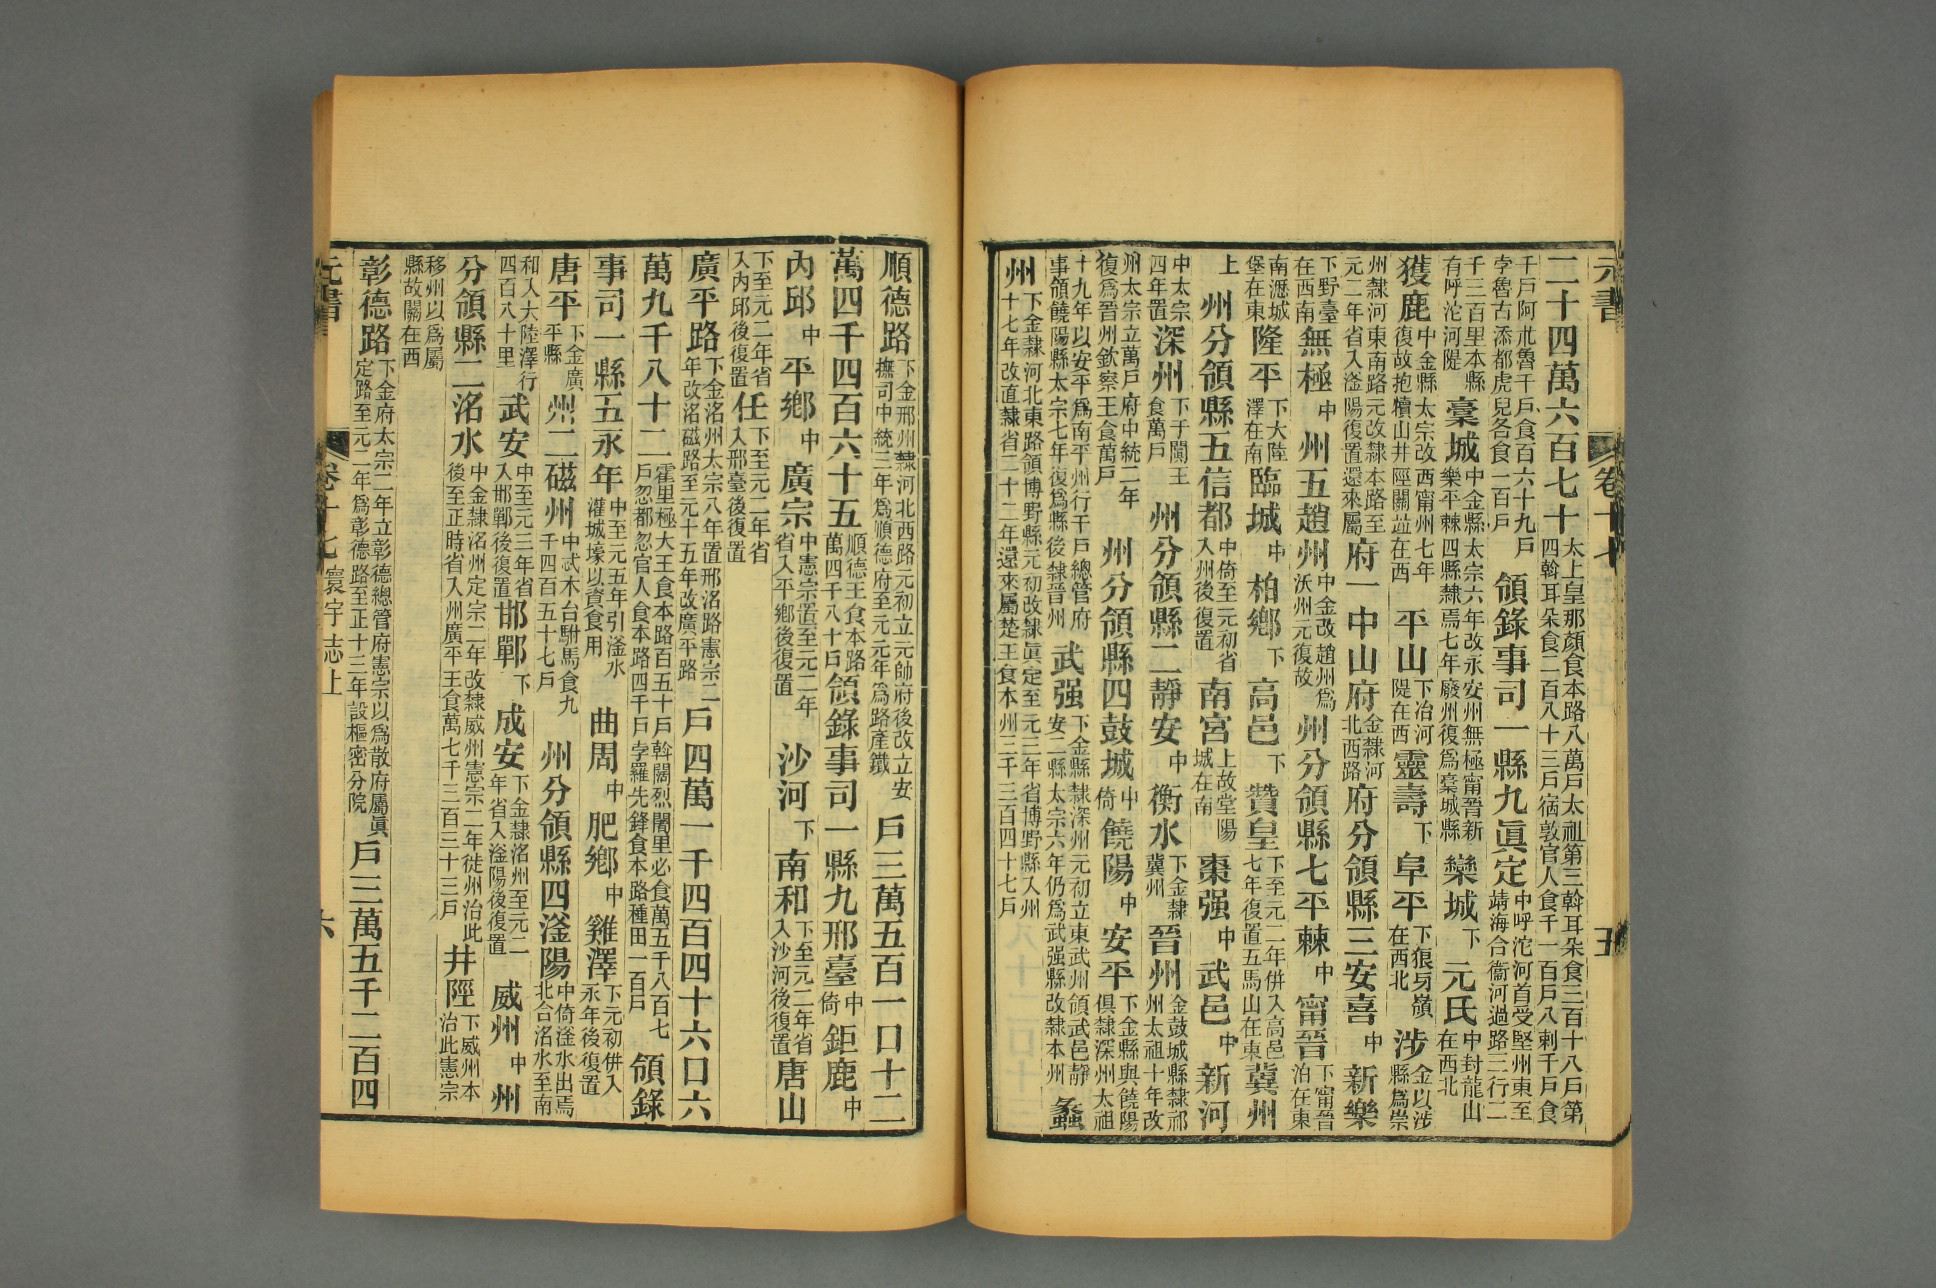 元書　卷十七　五
二十四萬六百七十太上皇那顏食本路八萬戶太祖第三斡耳朵食二百十八戶第四斡耳朵食二百八十三戶宿敦官人食千一百戶八剌千戶食
千戶阿朮魯千戶食百六十九戶孛魯古添都虎兒各食一百戶　領錄事司一縣九眞定中呼沱河首受堅州東至靖海合衞河過路三行二
千三百里本縣有呼沱河隄　藁城中金縣太宗六年改永安州無極甯晉新樂平棘四縣隸焉七年廢州復爲藁城縣　欒城下　元氏中封龍山在西北
獲鹿中金縣太宗改西甯州七年復故抱犢山井陘關竝在西　平山下冶河隄在西　靈壽下　阜平下狼牙嶺在西北　涉金以涉縣爲崇
州隸河東南路元改隸本路至元二年省入滏陽復置還來屬　府一中山府金隸河北西路　府分領縣三安喜中　新樂
下野臺在西南　無極中　州五趙州中金改趙州爲沃州元復故　州分領縣七平棘中　甯晉下甯晉泊在東
南城堡在東　隆平下大陸澤在南　臨城中　柏鄉下　高邑下　贊皇下至元二年併入高邑七年復置五馬山在東　冀州
上　州分領縣五信都中倚至元初省入州後復置　南宮上故堂陽城在南　棗强中　武邑中　新河
中太宗四年置　深州下于闐王食萬戶　州分領縣二靜安中　衡水下金隸冀州　晉州金鼓城縣隸祁州太祖十年改
州太宗立萬戶府中統二年復爲晉州欽察王食萬戶　州分領縣四鼓城中倚　饒陽中　安平下金縣與饒陽俱隸深州太祖
十九年以安平爲南平州行千戶總管府事領饒陽縣太宗七年復爲縣後隸晉州　武强下金縣隸深州元初立東武州領武邑靜安二縣太宗六年仍爲武强縣改隸本州　蠡
州下金隸河北東路領博野縣元初改隸眞定至元三年省博野縣入州十七年改直隸省二十二年還來屬楚王食本州三千三百四十七戶
順德路下金邢州隸河北西路元初立元帥府後改立安撫司中統三年爲順德府至元元年爲路產鐵　戶三萬五百一口十二
萬四千四百六十五順德王食本路萬四千八十戶　領錄事司一縣九邢臺中倚　鉅鹿中
內邱中　平鄉中　廣宗中憲宗置至元二年省入平鄉後復置　沙河下　南和下至元二年省入沙河後復置　唐山
下至元二年省入內邱後復置　任下至元二年省入邢臺後復置
廣平路下金洺州太宗八年置邢洺路憲宗二年改洺磁路至元十五年改廣平路　戶四萬一千四百四十六口六
萬九千八十二霍里極大王食本路百五十戶斡闊烈闍里必食萬五千八百七戶忽都忽官人食本路四千戶孛羅先鋒食本路種田一百戶　領錄
事司一縣五永年中至元五年引滏水灌城壕以資食用　曲周中　肥鄉中　雞澤下元初併入永年後復置
唐平下金廣平縣　州二磁州中忒木台駙馬食九千四百五十七戶　州分領縣四滏陽中倚滏水出焉北合洺水至南
和入大陸澤行四百八十里　武安中至元三年省入邯鄲後復置　邯鄲下　成安下金隸洺州至元二年省入滏陽後復置　威州中　州
分領縣二洺水中金隸洺州定宗二年改隸威州憲宗二年徙州治此後至正時省入州廣平王食萬七千三百三十三戶　井陘下威州本治此憲宗
移州以爲屬縣故關在西
彰德路下金府太宗二年立彰德總管府憲宗以爲散府屬眞定路至元二年爲彰德路至正十三年設樞密分院　戶三萬五千二百四
元書　卷十七　寰宇志上　六